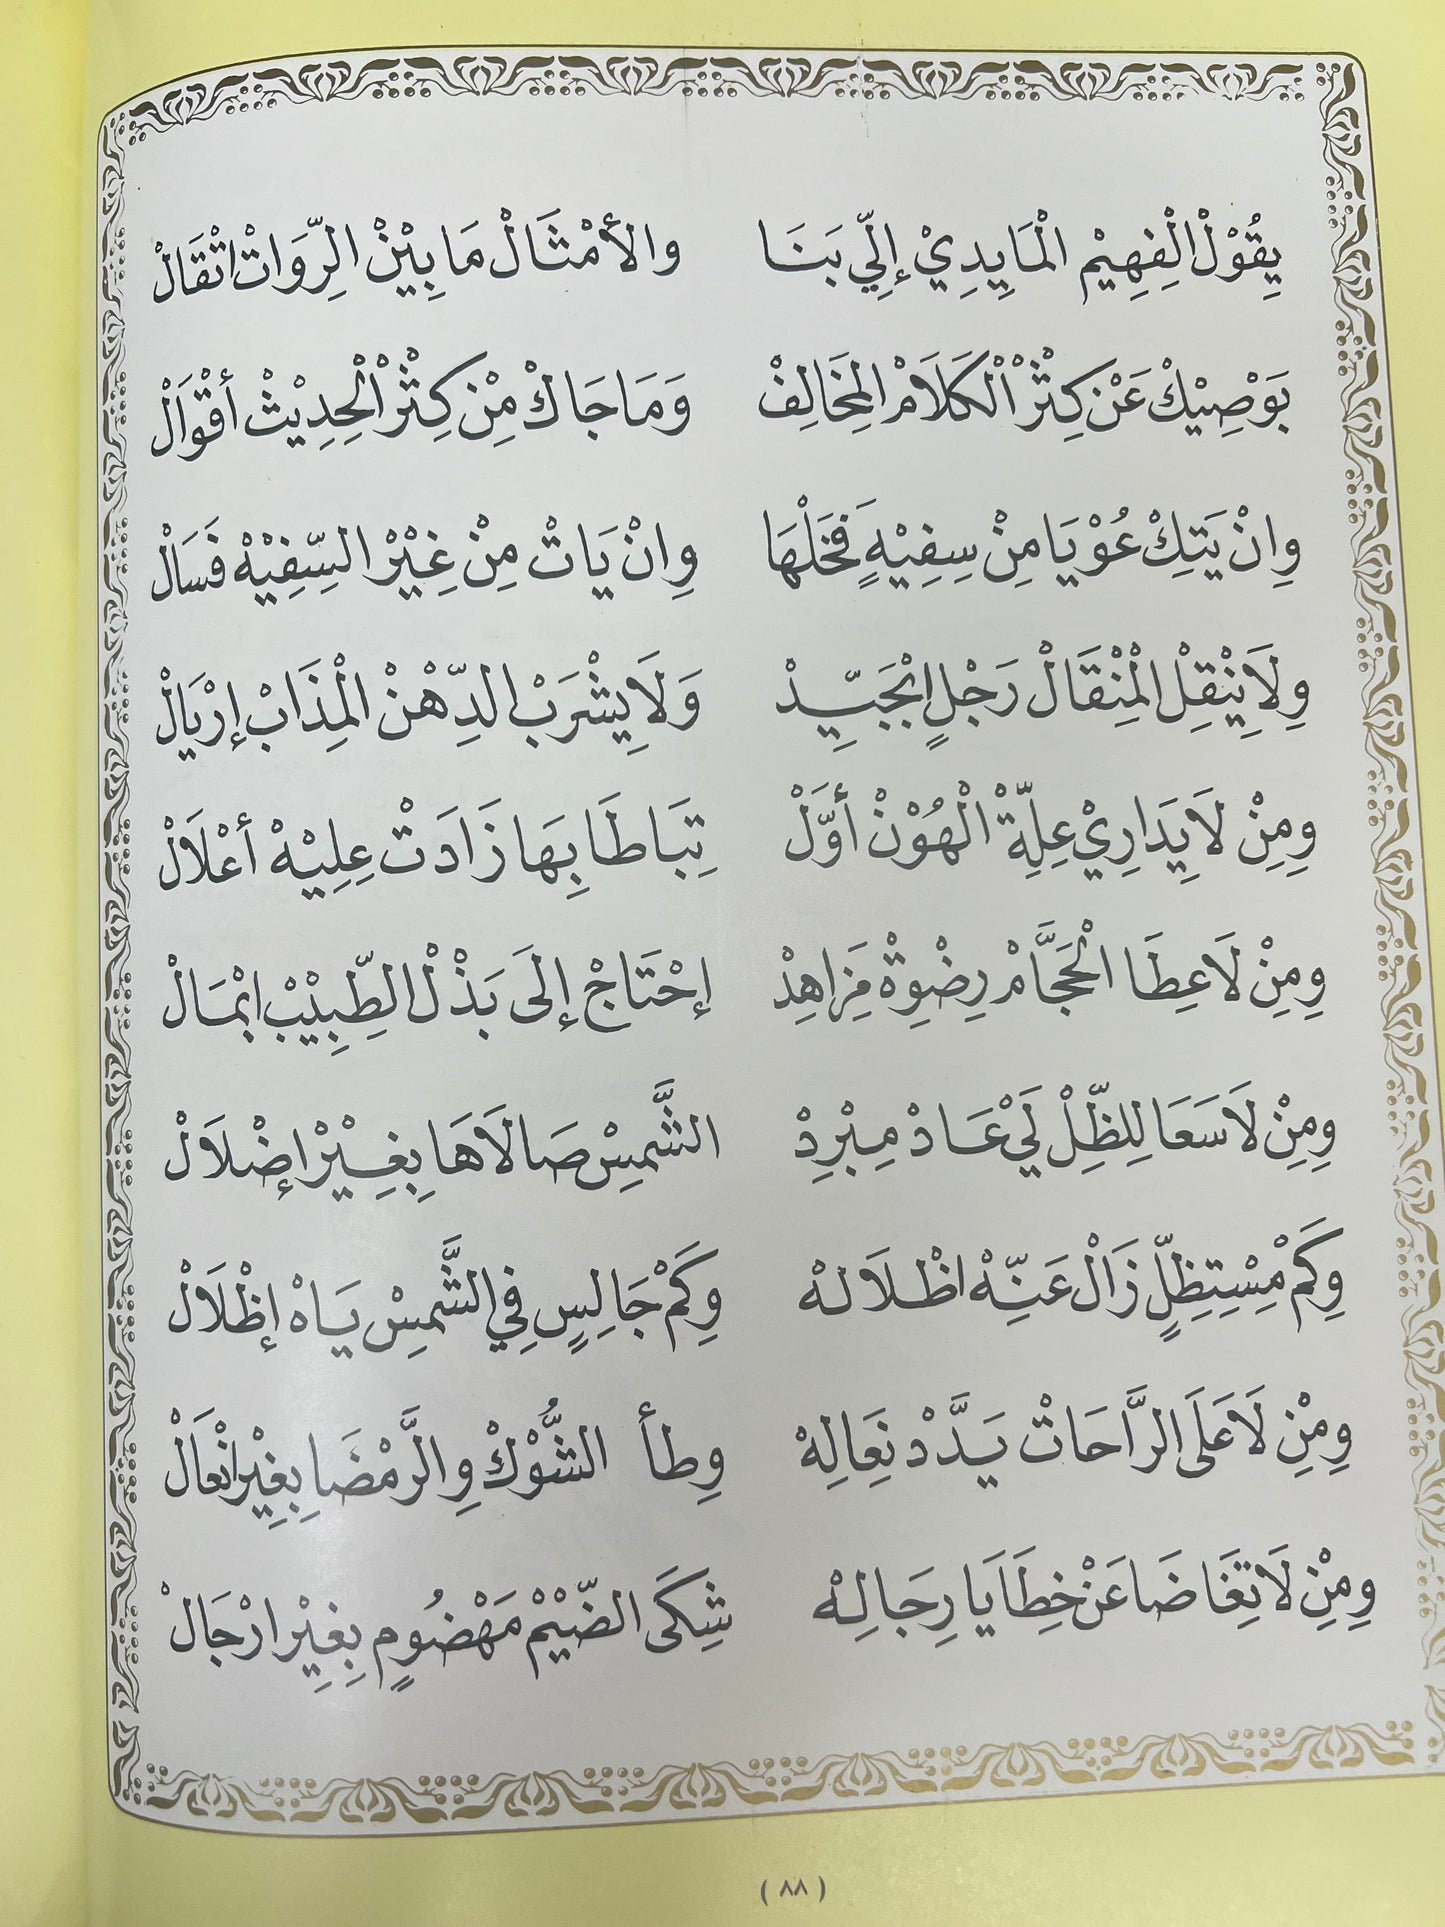 يِقُوْلْ الْفِهِيْم الْمَايِدِيْ إِلِّي بَنَا والأمْثَالْ مَا بِيْنْ الرِّوَاتْ اثْقَالْ
بَوْصِيْكْ عَنْ كِثْرْ الْكَلَامْ المِخَالِفْ وَمَا جَاكْ مِنْ كِثْرْ الْحِدِيْثْ أقْوَالْ
وِانْ يَتِكْ عُوْيَا مِنْ سِفِيْهٍ فَخَلْهَا وِانْ يَاتْ مِنْ غِيْرْ السِّفِيْهْ فَسَالْ
وِلَا يِنْقِلْ الْمِنْقَالْ رَجْلٍ ابْجَيِّدْ وَلَا يِشْرَبْ الدِّهْنْ الْمِذَابْ إرْيَالْ
وِمِنْ لَا يِدَارِيْ عِلِّةْ الْهُوْنْ أوَّلْ تِبَاطَا بِهَا زَادَتْ عِلِيْهْ أعْلَالْ
وِمِنْ لَا عِطَا الْحَجَّامْ رِضْوِةْ مَزَاهِدْ إحْتَاجْ إلَى بَذْلْ الطِّبِيْبْ ابْمَالْ
وِمِنْ لَا سَعَا لِلظِّلْ لَيْ عَادْ مِبْرِدْ الشَّمِسْ صَالَاهَا بِغِيْرْ إضْلَالْ
وِكَمْ مِسْتِظِلٍّ زَالْ عَنِّهْ اظْلَالهْ وِكَمْ جَالِسٍ فِي الشَّمِسْ يَاهْ إظْلَالْ
وِمِنْ لَا عَلَى الرَّاحَاتْ يَدَّدْ نِعَالِهْ وِطأ الشُّوْكْ وِالرَّمْضَا بِغِيْر انْعَالْ
وِمِنْ لَا تِغَاضَا عَنْ خِطَايَا رِجَالِهْ شِكَى الضِّيْمْ مَهْضُومٍ بِغِيْر ارْجَالْ
( ٨٨ )